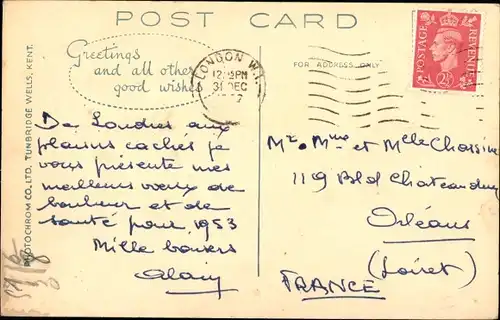 POST CARD
Greetings
and all other
good wishes
FOR ADDRESS ONLY
LONDON W.1.
12 PM
31 DEC
POSTAGE
REVENUE
2½
PHOTOCHROM CO., LTD., TUNBRIDGE WELLS, KENT.
De Londres aux
plaisirs cachés je
vous présente mes
meilleurs vœux de
bonheur et de
santé pour 1953
Mille baisers
Alain
Mr. Mme et Mlle
119 Bld Chateaudun
Orléans
(Loiret)
FRANCE